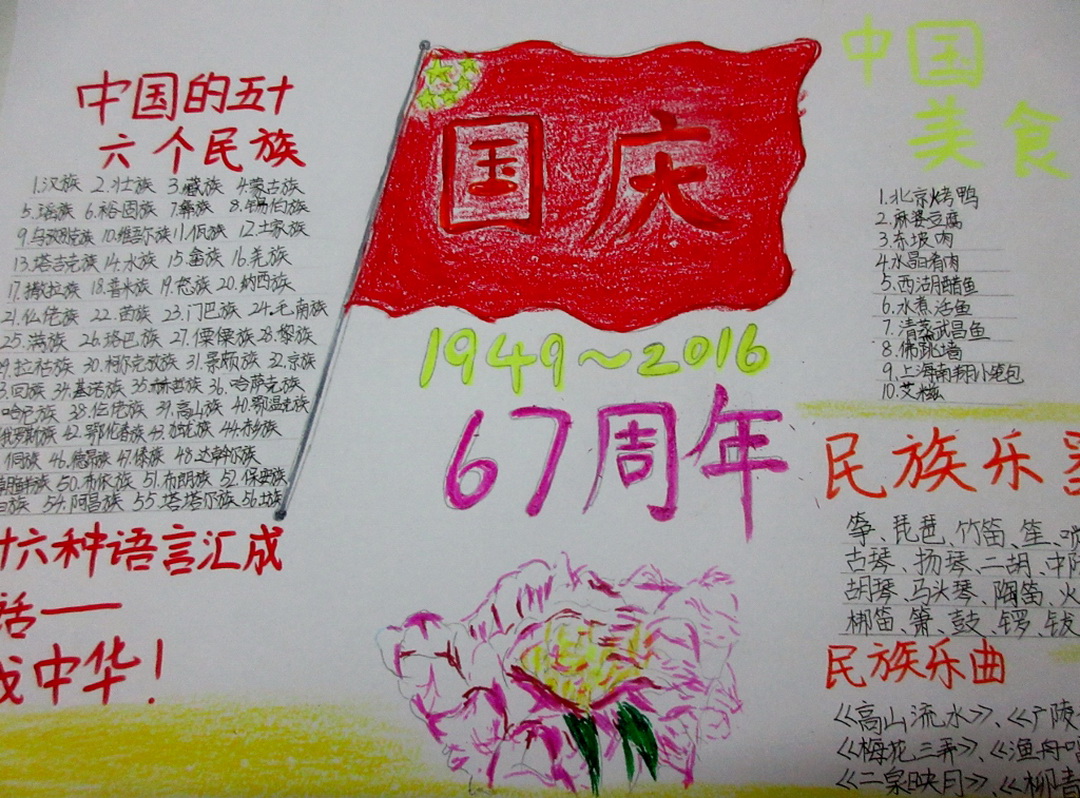 中国的五十
六个民族
1.汉族 2.壮族 3.藏族 4.蒙古族
5.瑶族 6.裕固族 7.彝族 8.锡伯族
9.乌孜别克族 10.维吾尔族 11.佤族 12.土家族
13.塔吉克族 14.水族 15.畲族 16.羌族
17.撒拉族 18.普米族 19.怒族 20.纳西族
21.仫佬族 22.苗族 23.门巴族 24.毛南族
25.满族 26.珞巴族 27.傈僳族 28.黎族
29.拉祜族 30.柯尔克孜族 31.景颇族 32.京族
3.回族 34.基诺族 35.赫哲族 36.哈萨克族
哈尼族 38.仡佬族 39.高山族 40.鄂温克族
俄罗斯族 42.鄂伦春族 43.独龙族 44.东乡族
侗族 46.德昂族 47.傣族 48.达斡尔族
朝鲜族 50.布依族 51.布朗族 52.保安族
白族 54.阿昌族 55.塔塔尔族 56.土族
十六种语言汇成
话——
中华!
国庆
1949~2016
67周年
中国
美食
1.北京烤鸭
2.麻婆豆腐
3.东坡肉
4.水晶肴肉
5.西湖醋鱼
6.水煮活鱼
7.清蒸武昌鱼
8.佛跳墙
9.上海南翔小笼包
10.艾糍
民族乐器
筝、琵琶、竹笛、笙、
古琴、扬琴、二胡、中阮
胡琴、马头琴、陶笛、火
梆笛、箫、鼓、锣、钹
民族乐曲
《高山流水》、《广陵
《梅花三弄》、《渔舟唱
《二泉映月》、《柳青